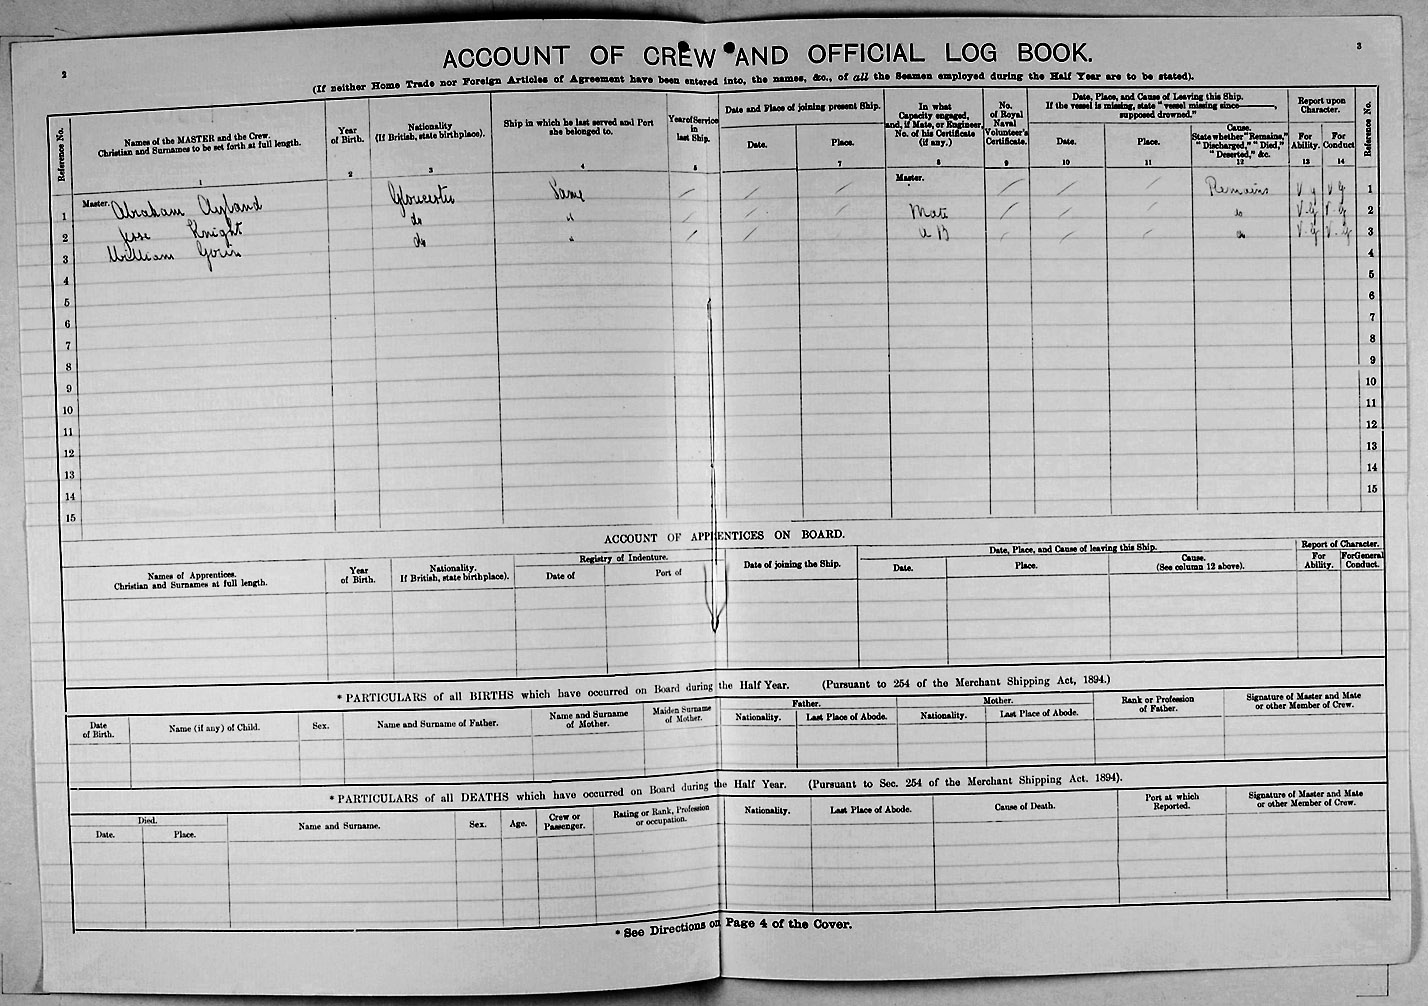 2
3
ACCOUNT OF CREW AND OFFICIAL LOG BOOK.
(If neither Home Trade nor Foreign Articles of Agreement have been entered into, the names, &c., of all the Seamen employed during the Half Year are to be stated).
Reference No.
Names of the MASTER and the Crew.
Christian and Surnames to be set forth at full length.
1
Year
of Birth.
2
Nationality
(If British, state birthplace).
3
Ship in which he last served and Port
she belonged to.
4
Year of Service
in
last Ship.
5
Date and Place of joining present Ship.
Date.
Place.
7
In what
Capacity engaged,
and, if Mate, or Engineer,
No. of his Certificate
(if any.)
8
No.
of Royal
Naval
Volunteer's
Certificate.
9
Date, Place, and Cause of Leaving this Ship.
If the vessel is missing, state "vessel missing since ———,
supposed drowned."
Date.
10
Place.
11
Cause.
State whether "Remains,"
"Discharged," "Died,"
"Deserted," &c.
12
Report upon
Character.
For
Ability.
13
For
Conduct
14
Reference No.
1 Master. Abraham Ayland Gloucester Same / / / Master. / / / Remains V. g V g 1
2 Jesse Knight do " / / / Mate / / / do V. g V. g 2
3 William do " / / A B / / / do V. g V. g 3
4 4
5 5
6 6
7 7
8 8
9 9
10 10
11 11
12 12
13 13
14 14
15 15
ACCOUNT OF APPRENTICES ON BOARD.
Names of Apprentices.
Christian and Surnames at full length.
Year
of Birth.
Nationality.
If British, state birthplace).
Registry of Indenture.
Date of
Port of
Date of joining the Ship.
Date, Place, and Cause of leaving this Ship.
Date.
Place.
Cause.
(See column 12 above).
Report of Character.
For
Ability.
For General
Conduct.
* PARTICULARS of all BIRTHS which have occurred on Board during the Half Year. (Pursuant to 254 of the Merchant Shipping Act, 1894.)
Date
of Birth.
Name (if any) of Child.
Sex.
Name and Surname of Father.
Name and Surname
of Mother.
Maiden Surname
of Mother.
Father.
Nationality.
Last Place of Abode.
Mother.
Nationality.
Last Place of Abode.
Rank or Profession
of Father.
Signature of Master and Mate
or other Member of Crew.
* PARTICULARS of all DEATHS which have occurred on Board during the Half Year. (Pursuant to Sec. 254 of the Merchant Shipping Act. 1894).
Died.
Date.
Place.
Name and Surname.
Sex.
Age.
Crew or
Passenger.
Rating or Rank, Profession
or occupation.
Nationality.
Last Place of Abode.
Cause of Death.
Port at which
Reported.
Signature of Master and Mate
or other Member of Crew.
* See Directions on Page 4 of the Cover.